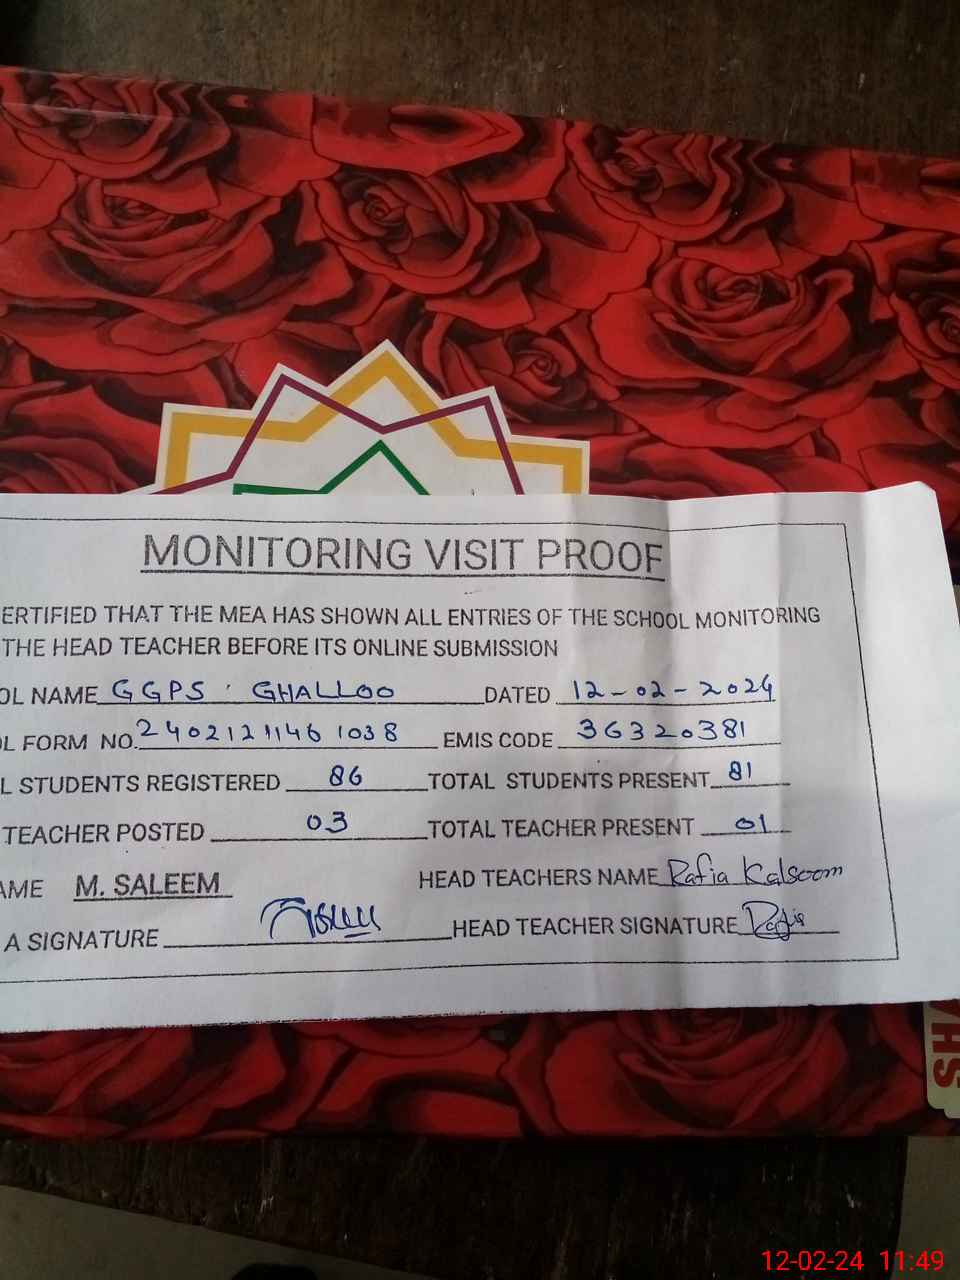 MONITORING VISIT PROOF
ERTIFIED THAT THE MEA HAS SHOWN ALL ENTRIES OF THE SCHOOL MONITORING
THE HEAD TEACHER BEFORE ITS ONLINE SUBMISSION
OL NAME GGPS GHALLOO DATED 12-02-2024
L FORM NO. 24021211461038 EMIS CODE 36320381
L STUDENTS REGISTERED 86 TOTAL STUDENTS PRESENT 81
TEACHER POSTED 03 TOTAL TEACHER PRESENT 01
AME M. SALEEM HEAD TEACHERS NAME Rafia Kalsoom
A SIGNATURE HEAD TEACHER SIGNATURE Rafia
VHS
12-02-24 11:49